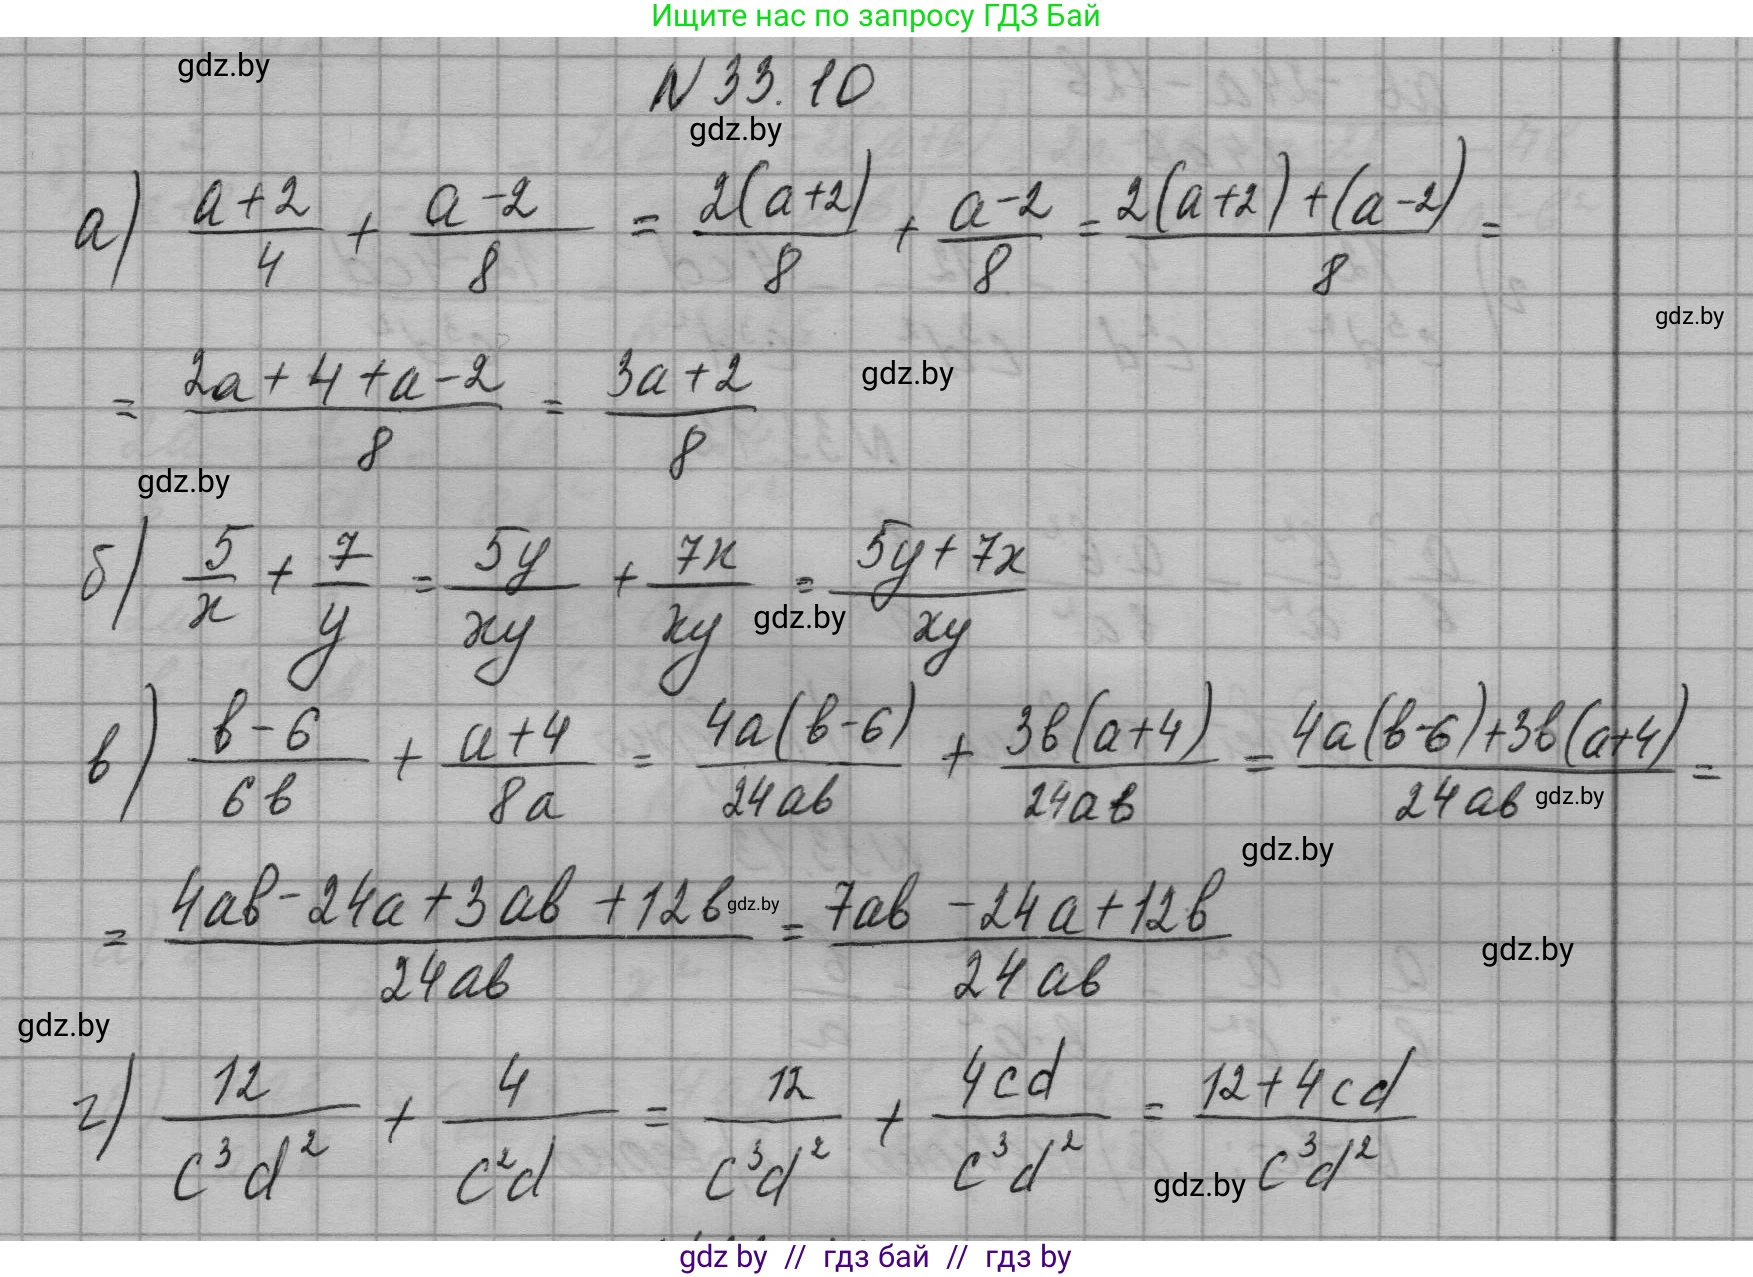 Ищите нас по запросу ГДЗ Бай
gdz.by
N 33.10
gdz.by
а) (a+2)/4 + (a-2)/8 = 2(a+2)/8 + (a-2)/8 = (2(a+2)+(a-2))/8 =
gdz.by
= (2a+4+a-2)/8 = (3a+2)/8
gdz.by
gdz.by
б) 5/x + 7/y = 5y/xy + 7x/xy = (5y+7x)/xy
gdz.by
в) (b-6)/6b + (a+4)/8a = 4a(b-6)/24ab + 3b(a+4)/24ab = (4a(b-6)+3b(a+4))/24ab =
gdz.by
gdz.by
= (4ab-24a+3ab+12b)/24ab = (7ab-24a+12b)/24ab
gdz.by
gdz.by
gdz.by
г) 12/c³d² + 4/c²d = 12/c³d² + 4cd/c³d² = (12+4cd)/c³d²
gdz.by
gdz by // гдз бай // гдз by